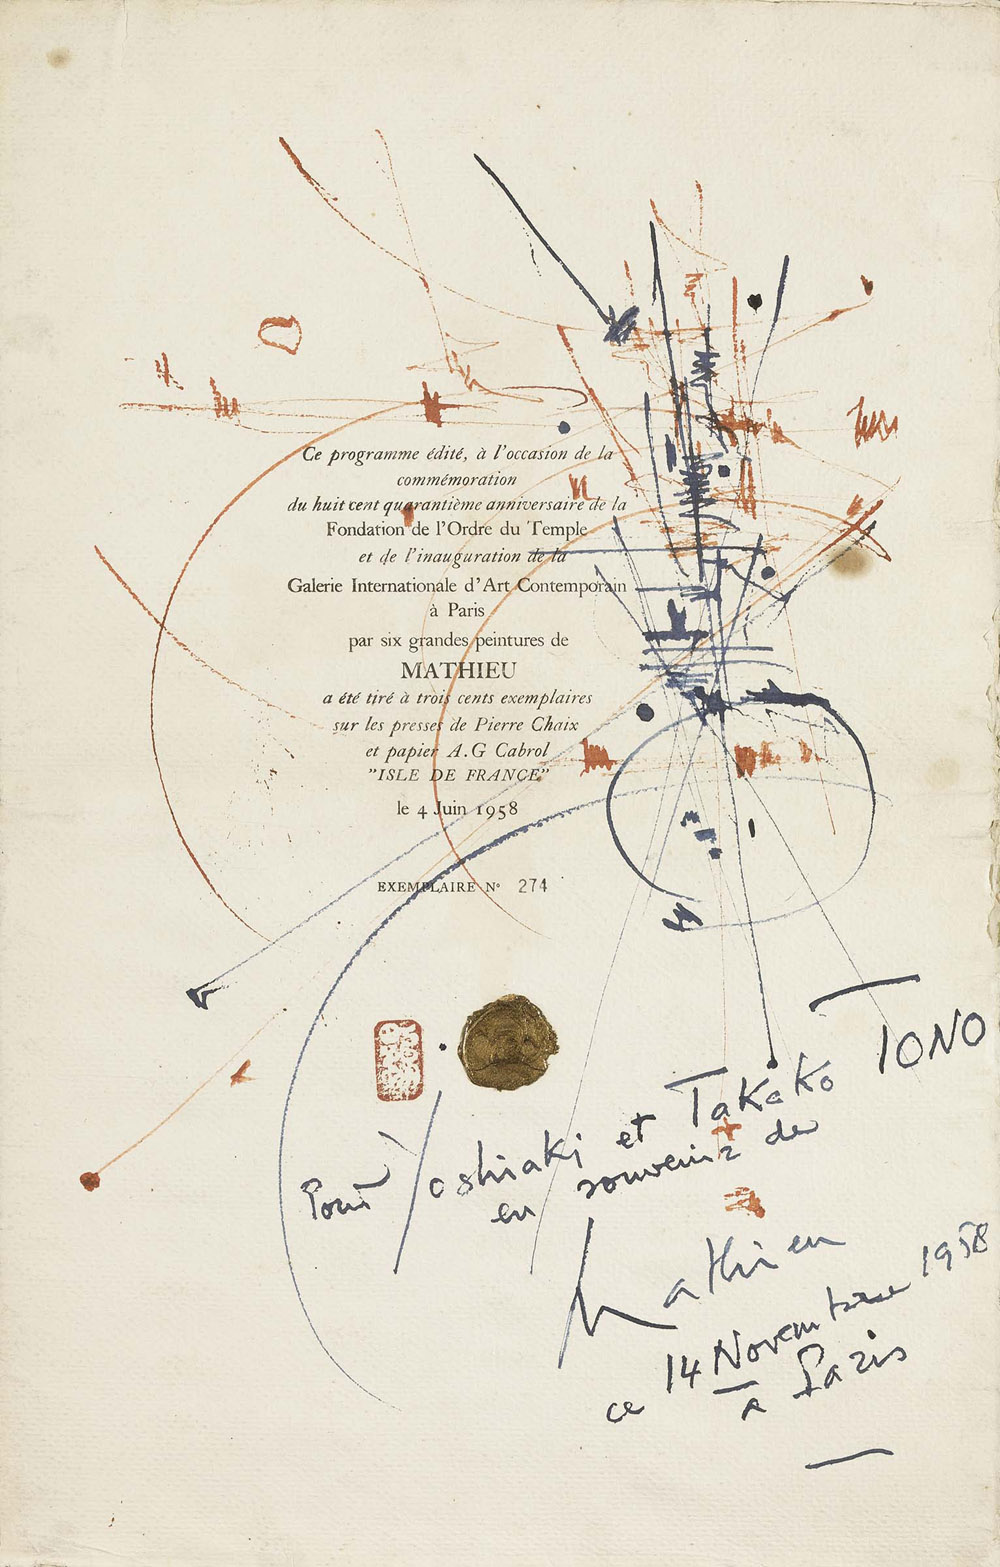 Ce programme édité, à l'occasion de la
commémoration
du huit cent quarantième anniversaire de la
Fondation de l'Ordre du Temple
et de l'inauguration de la
Galerie Internationale d'Art Contemporain
à Paris
par six grandes peintures de
MATHIEU
a été tiré à trois cents exemplaires
sur les presses de Pierre Chaix
et papier A.G Cabrol
"ISLE DE FRANCE"
le 4 Juin 1958
EXEMPLAIRE N° 274
Pour Yoshiaki et Takako TONO
en souvenir de
Mathieu
ce 14 Novembre 1958
à Paris